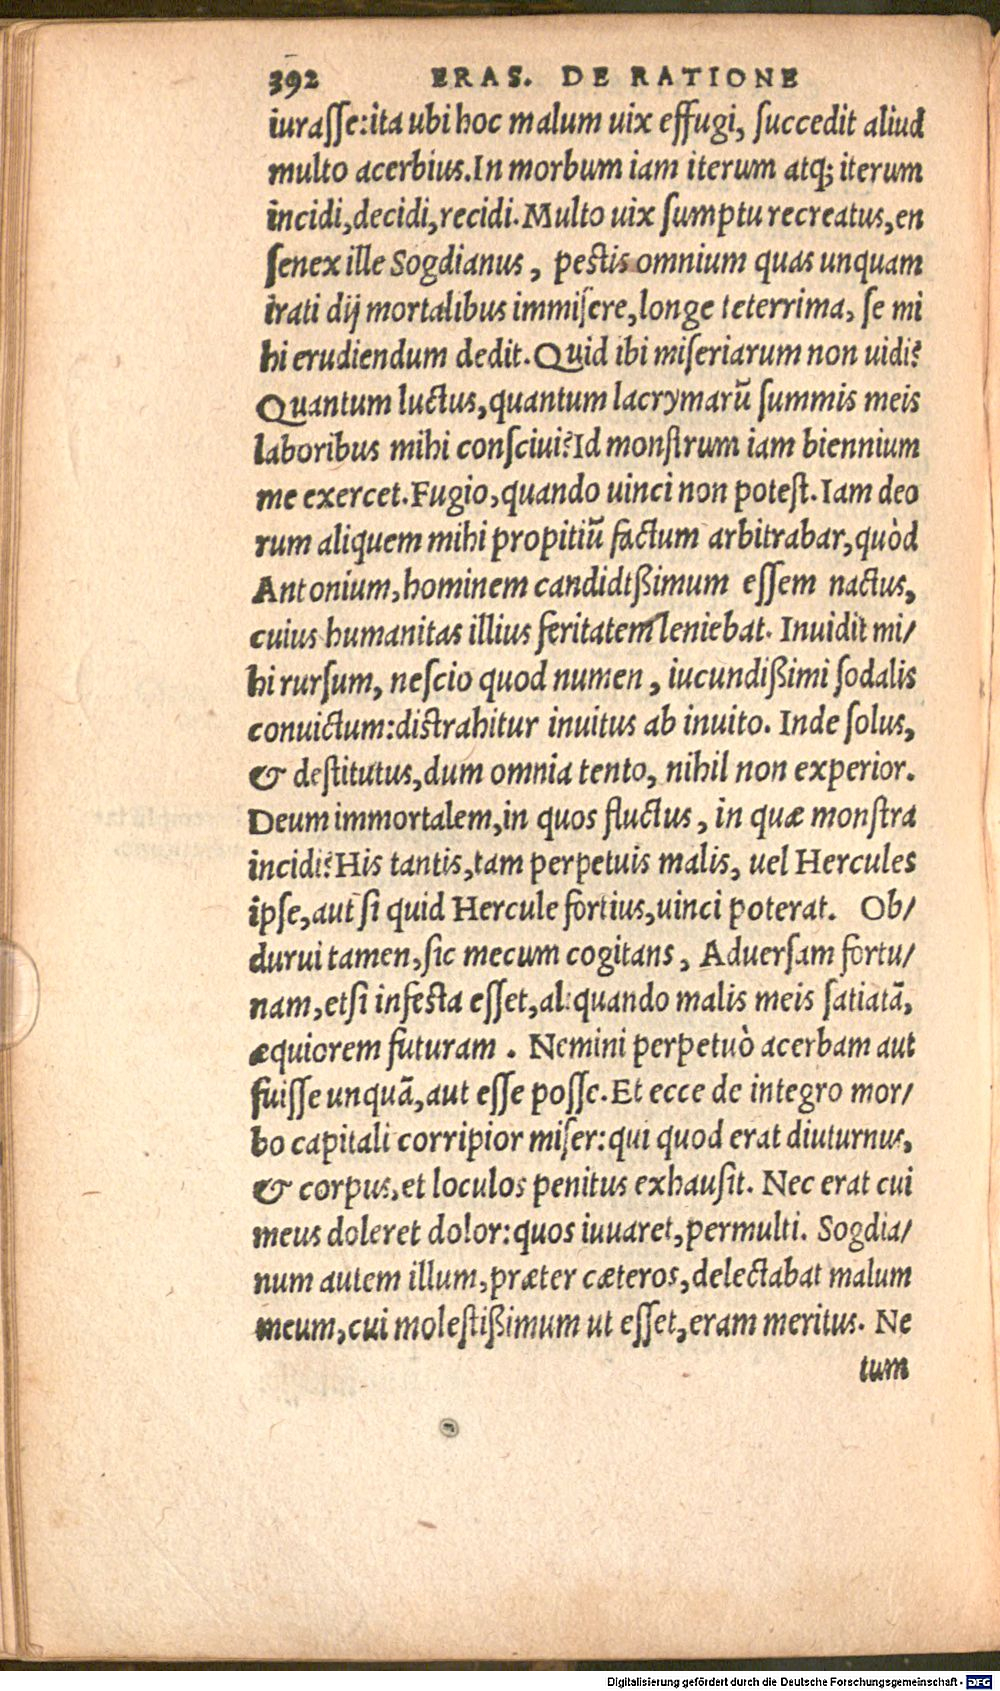 392 ERAS. DE RATIONE
iurasse:ita ubi hoc malum uix effugi, succedit aliud
multo acerbius.In morbum iam iterum atq; iterum
incidi,decidi,recidi.Multo uix sumptu recreatus,en
senex ille Sogdianus, pestis omnium quas unquam
irati dij mortalibus immisere,longe teterrima, se mi
hi erudiendum dedit.Quid ibi miseriarum non uidi?
Quantum luctus,quantum lacrymarũ summis meis
laboribus mihi consciui?Id monstrum iam biennium
me exercet.Fugio,quando uinci non potest.Iam deo
rum aliquem mihi propitiũ factum arbitrabar,quòd
Antonium,hominem candidißimum essem nactus,
cuius humanitas illius feritatem leniebat. Inuidit mi/
hi rursum, nescio quod numen, iucundißimi sodalis
conuictum:distrahitur inuitus ab inuito. Inde solus,
& destitutus,dum omnia tento, nihil non experior.
Deum immortalem,in quos fluctus, in quæ monstra
incidi?His tantis,tam perpetuis malis, uel Hercules
ipse,aut si quid Hercule fortius,uinci poterat. Ob/
durui tamen,sic mecum cogitans, Aduersam fortu/
nam,etsi infesta esset,aliquando malis meis satiatã,
æquiorem futuram. Nemini perpetuò acerbam aut
fuisse unquã,aut esse posse.Et ecce de integro mor/
bo capitali corripior miser:qui quod erat diuturnus,
& corpus,et loculos penitus exhausit. Nec erat cui
meus doleret dolor:quos iuuaret,permulti. Sogdia/
num autem illum,præter cæteros,delectabat malum
meum,cui molestißimum ut esset,eram meritus. Ne
tum
Digitalisierung gefördert durch die Deutsche Forschungsgemeinschaft - DFG